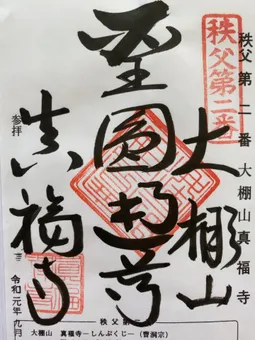 秩父第二番
秩父第二番大棚山真福寺
大棚山
聖圓通尊
真福寺
参拝
令和元年九月
秩父第二番
大棚山 真福寺－しんぷくじ－(曹洞宗)